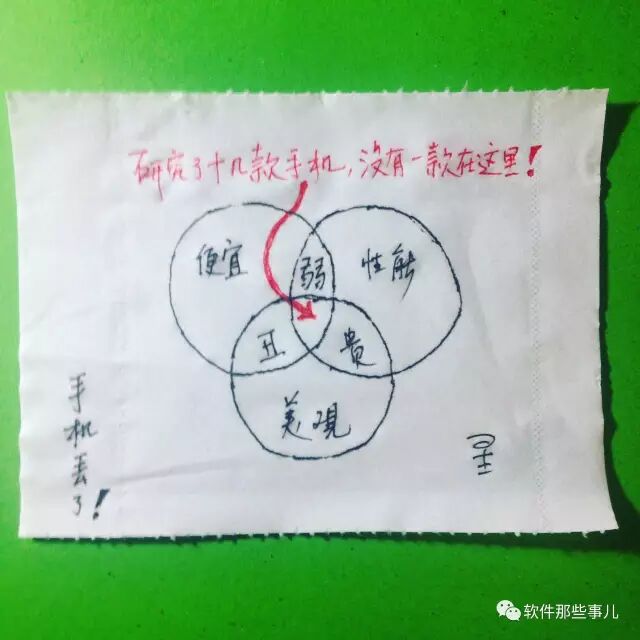 研究了十几款手机，没有一款在这里！
便宜
弱
性能
丑
贵
美观
手机丢了！
软件那些事儿